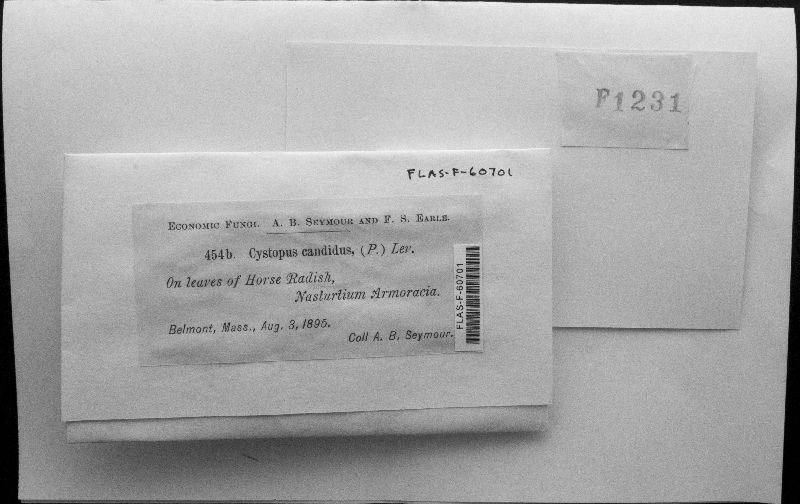 F1231
FLAS-F-60701
Economic Fungi. A. B. Seymour and F. S. Earle.
454b. Cystopus candidus, (P.) Lev.
On leaves of Horse Radish,
Nasturtium Armoracia.
Belmont, Mass., Aug. 3, 1895.
Coll A. B. Seymour.
FLAS-F-60701